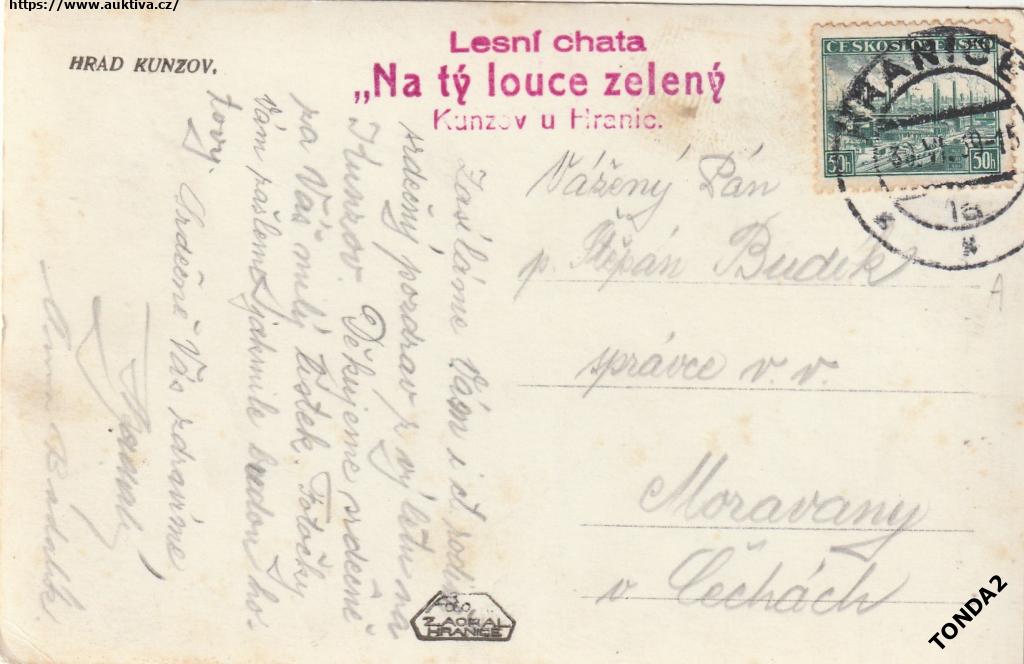 https://www.auktiva.cz/
HRAD KUNZOV.
Lesní chata
„Na tý louce zelený
Kunzov u Hranic.
ČESKOSLOVENSKO
50h 50h
HRANICE
Zasíláme Vám i ct. rodině
srdečný pozdrav z výletu na
Kunzov. Děkujeme srdečně
za Váš milý lístek. Fotečky
Vám pašleme jakmile budou ho-
tovy. Srdečně Vás zdravíme
Vážený Pán
p. Štěpán Budík
správce v. v.
Moravany
v Čechách
FOTO
ZAORAL
HRANICE
A
TONDA2